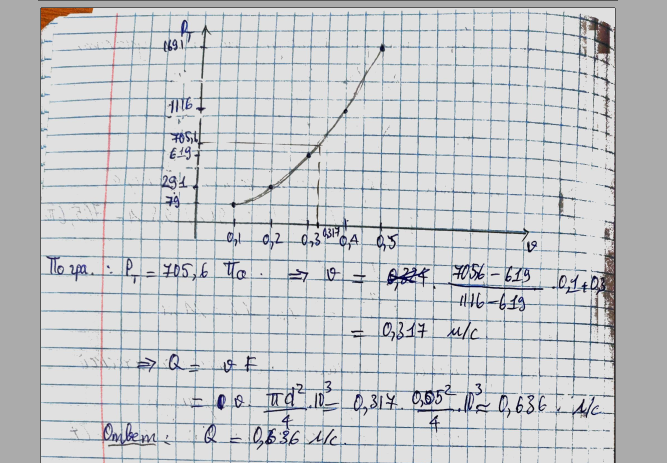 P_T
1691
1116
705,6
619
291
79
0,1 0,2 0,3 0,317 0,4 0,5 v
По гра. : P_T = 705,6 Па. ⇒ v = (7056 - 619)/(1116 - 619) · 0,1 + 0,3
= 0,317 м/с
⇒ Q = v F
= v · πd²/4 · 10³ = 0,317 · 0,05²/4 · 10³ ≈ 0,636 . л/с
Ответ : Q = 0,636 л/с.